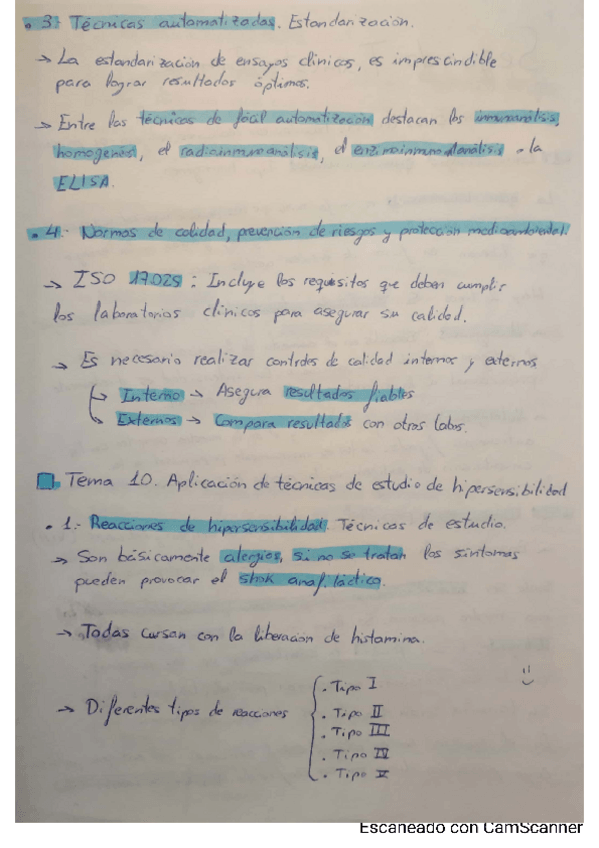 • 3.- Técnicas automatizadas. Estandarización.
→ La estandarización de ensayos clínicos, es imprescindible
para lograr resultados óptimos.
→ Entre las técnicas de fácil automatización destacan los inmunoanálisis
homogeneos, el radioinmunoanálisis, el enzimoinmunoanálisis o la
ELISA.
• 4.- Normas de calidad, prevención de riesgos y protección medioambiental.
→ ISO 17025 : Incluye los requisitos que deben cumplir
los laboratorios clínicos para asegurar su calidad.
→ Es necesario realizar controles de calidad internos y externos
→ Interno → Asegura resultados fiables
→ Externos → Compara resultados con otros labs.
Tema 10. Aplicación de técnicas de estudio de hipersensibilidad
• 1.- Reacciones de hipersensibilidad. Técnicas de estudio.
→ Son básicamente alergias, si no se tratan los síntomas
pueden provocar el shok anafiláctico.
→ Todas cursan con la liberación de histamina.
→ Diferentes tipos de reacciones
. Tipo I
. Tipo II
. Tipo III
. Tipo IV
. Tipo V
Escaneado con CamScanner